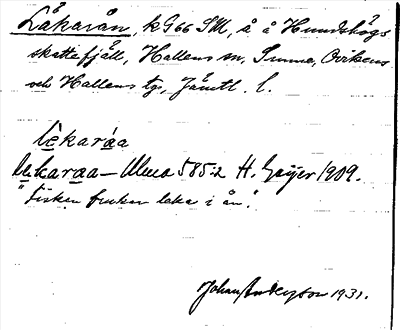 Låkaråån, kG66 SM, å å Hundshögs
skattefjäll, Hallens sn, Sunne, Ovikens
och Hallens tg, Jämtl. l.
lèkaráa
lekaraa – Ulma 585:2 H. Geijer 1909.
"Fisken bruken leka i ån".
Johan Anderzson 1931.